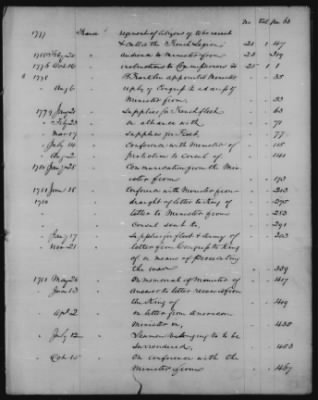 No. Vol. Pa. No
1777 France represent citizens of who resist
& called the French Legion 23 1 147
1780 Feby 24 " audience to Minister from 25 309
1776 Oct 16 " instructions to Commissioners to 25 1 1
" 1778 " B Franklin appointed Minister 35
" Aug 6 " reply of Congress to address of
Minister from 53
1779 Jany 21 " Supplies for French fleet 63
" Feby 23 " on alliance with 71
" Mar 17 " supplies for Fleet 77
" July 14 " Conference with Minister of 115
" Aug 2 " protection to Consul of 141
Jany 25 " Communication from the Min-
ister from 173
1781 Jan 18 " Conference with Minister from 203
1780 " draught of letter to King of 275
" letter to Minister from 253
" Consul sent to, 291
" Jany 17 " Supplies for fleet & Army of 203
" Nov 21 " letter from Congress to King
of on means of prosecuting
the war 309
May 26 " On memorial of Minister of 417
" June 13 " Answer to letter received from
the King of 419
" Apr 2 " on letter from American
Minister on, 450
" July 12 " Seamen belonging to to be
surrendered, 453
" Oct 15 " On conference with the
Minister from 467